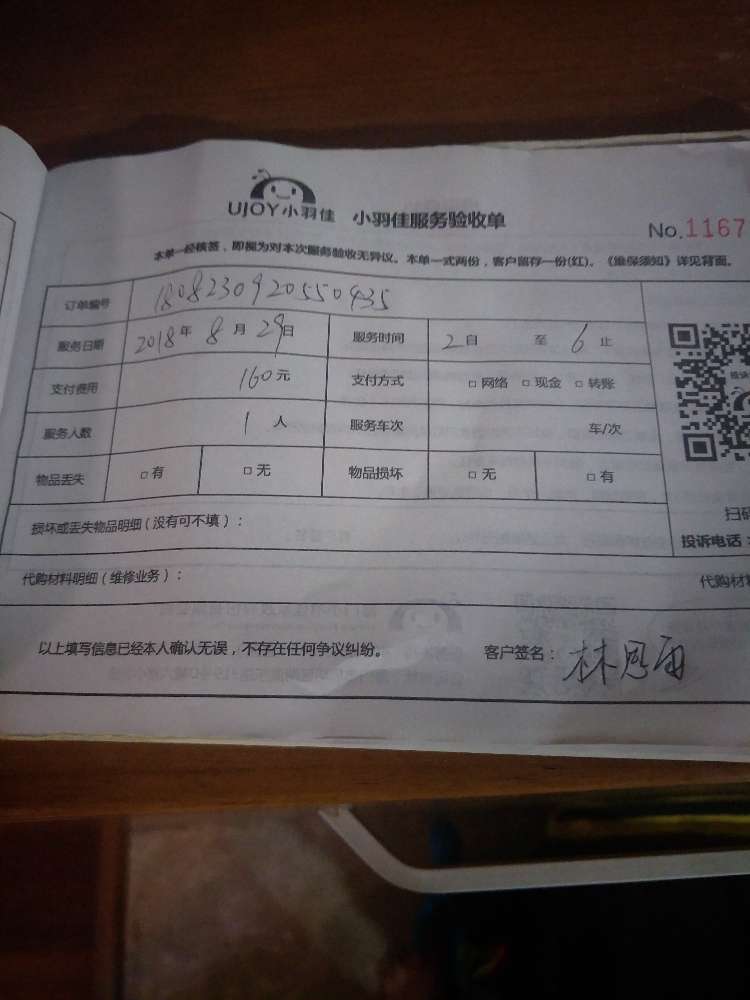 UJOY小羽佳 小羽佳服务验收单
No.1167
本单一经核签，即视为对本次服务验收无异议。本单一式两份，客户留存一份(红)。《维保须知》详见背面。
订单编号 1808230920550435
服务日期 2018年8月29日 服务时间 2自 至 6止
支付费用 160元 支付方式 □网络 □现金 □转账
服务人数 1人 服务车次 车/次
物品丢失 □有 □无 物品损坏 □无 □有
损坏或丢失物品明细（没有可不填）： 扫码
投诉电话：
代购材料明细（维修业务）： 代购材
以上填写信息已经本人确认无误，不存在任何争议纠纷。 客户签名：林恩雨